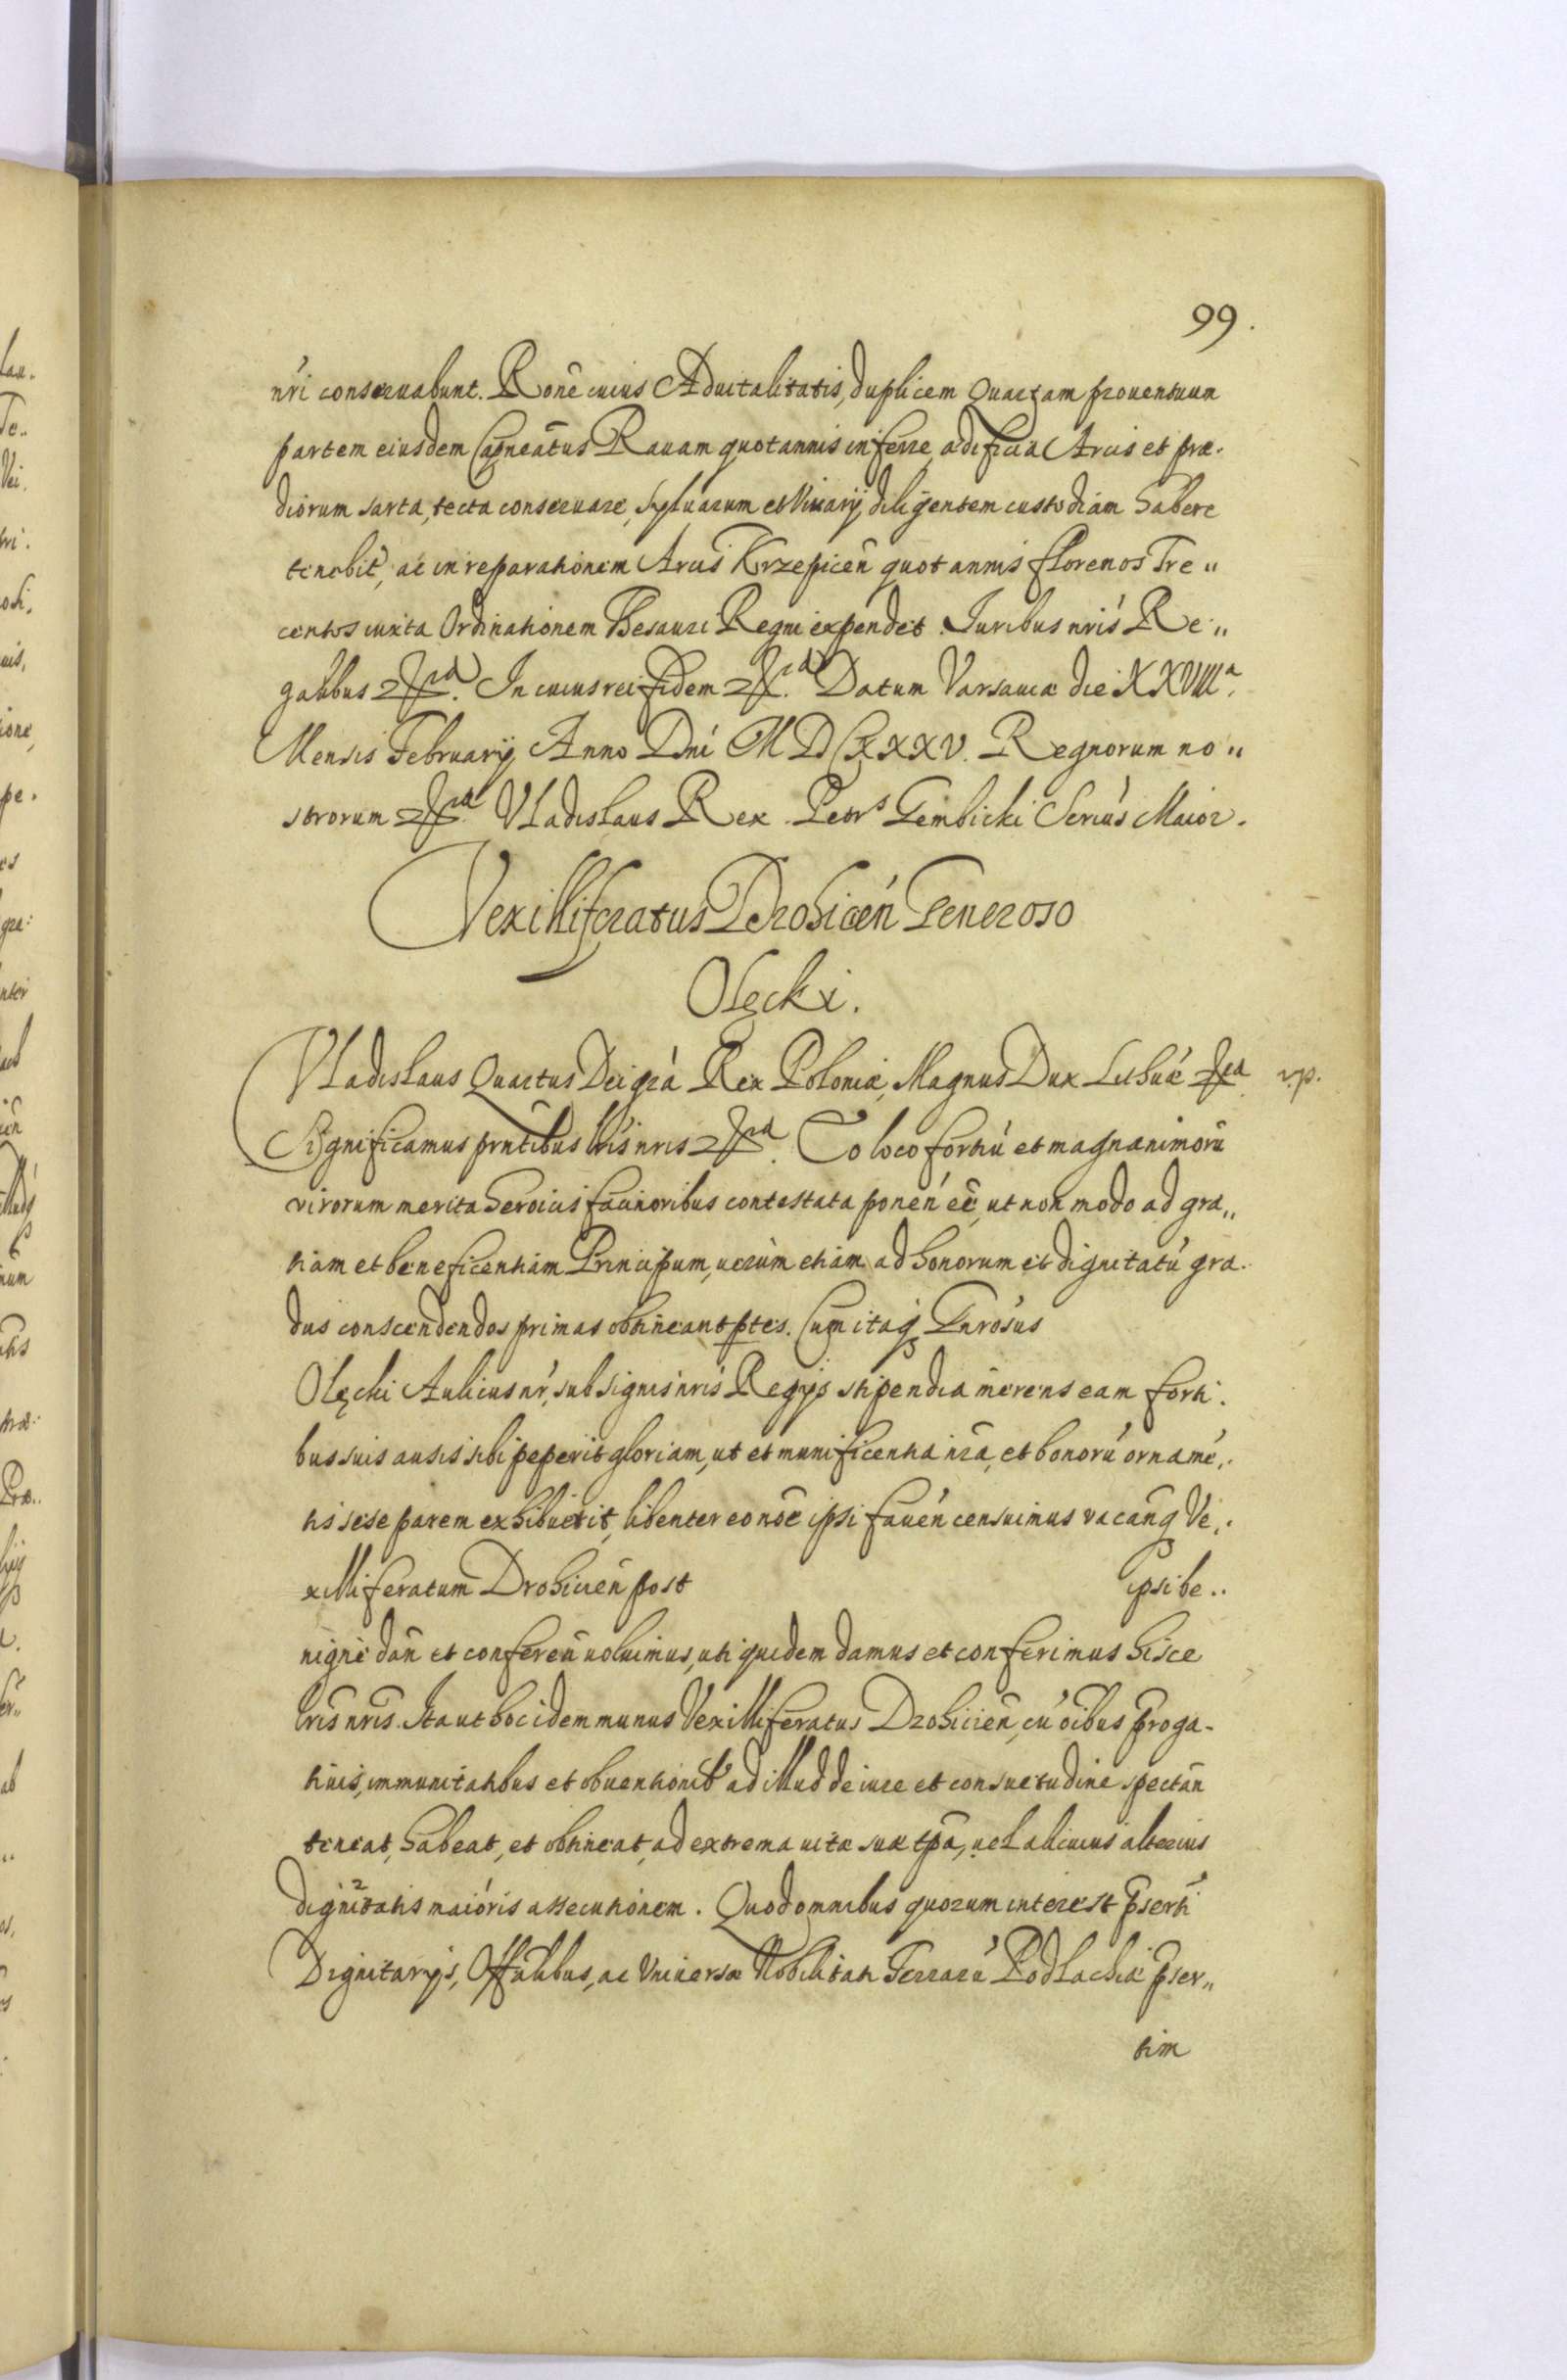 99.
nri conseruabunt. Rone cuius Aduitalitatis, duplicem Quartam prouentuum
partem eiusdem Capneatus Rauam quotannis inferre, ædificia Arcis et præ-
diorum sarta, tecta conseruare, Syluarum et Viuarij diligentem custodiam habere
tenebit, ac in reparationem Arcis Krzepicen quotannis florenos Tre„
centos iuxta Ordinationem Thesauri Regni expendet. Iuribus nris Re„
galibus etc. In cuius rei fidem etc. Datum Varsauiæ die XXVIIIa.
Mensis Februarij Anno Dni MDCXXXV. Regnorum no„
strorum etc. Vladislaus Rex. Petrs Gembicki Scrius Maior.
Vexilliferatus Drohicen Generoso
Olęcki.
Vladislaus Quartus Dei gra Rex Poloniæ, Magnus Dux Lithuæ etc. v.p.
Significamus pntibus lris nris etc. Eo loco fortiu et magnanimoru
virorum merita heroicis facinoribus contestata ponen ee, ut non modo ad gra„
tiam et beneficentiam Principum, uerum etiam ad honorum et dignitatu gra-
dus conscendendos primas obtineant ptes. Cum itaq Gnrosus
Olęcki Aulicus nr, sub signis nris Regijs stipendia merens eam forti-
bus suis ausis sibi peperit gloriam, ut et munificentia nra, et bonoru orname„
tis sese parem exhibuerit, libenter eo noe ipsi fauen censuimus vacang Ve„
xilliferatum Drohicien post ipsi be„
nigne dan et conferen uoluimus, uti quidem damus et conferimus hisce
lris nris. Ita ut hoc idem munus Vexilliferatus Drohicien, cu oibus proga-
tiuis, immunitatibus et obuentionib ad illud de iure et consuetudine spectan
teneat, habeat, et obtineat, ad extrema uitæ suæ tpa, uel alicuius alterius
dignitatis maioris assecutionem. Quod omnibus quorum interest pserti
Dignitarijs, Offalibus, ac Vniuersæ Nobilitati Terraru Podlachiæ pser„
tim